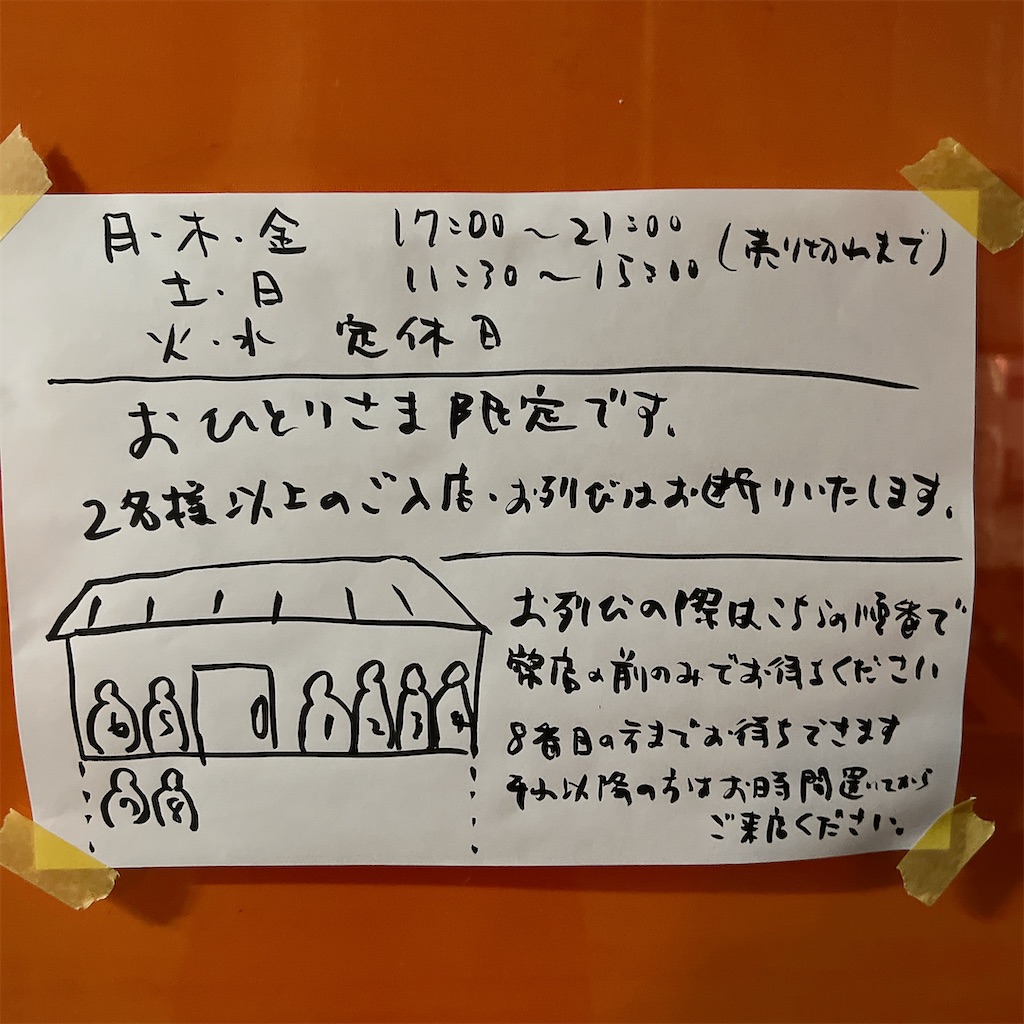 月・木・金 17:00〜21:00 (売り切れまで)
土・日 11:30〜15:00
火・水 定休日
おひとりさま限定です。
2名様以上のご入店・お列びはお断りいたします。
お列びの際はこちらの順番で
当店の前のみでお待ちください
8番目の方までお待ちできます
それ以降の方はお時間置いてから
ご来店ください。
6 5 1 2 3 4
7 8